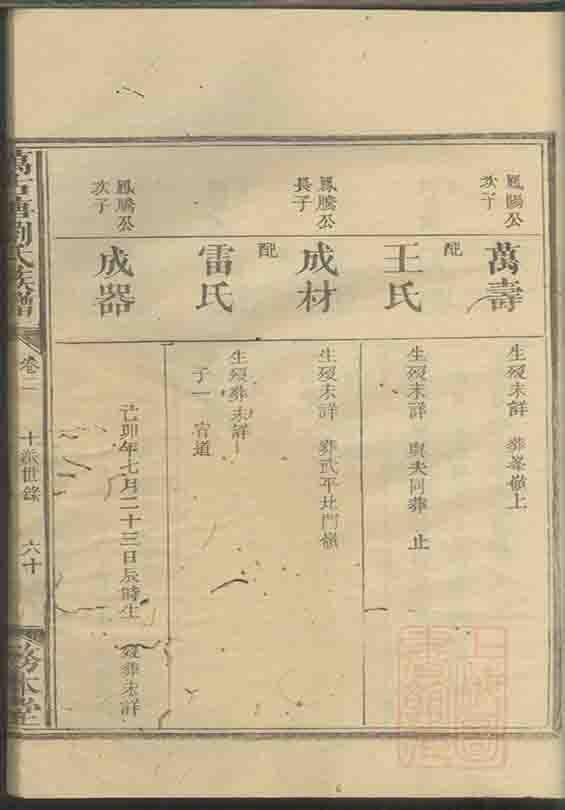 鳳陽公
次子
萬壽
生歿未詳 葬峯嶺上
配
王氏
生歿未詳 與夫同葬 止
鳳騰公
長子
成材
生歿未詳 葬武平北門嶺
配
雷氏
生歿葬未詳
子一 官道
鳳騰公
次子
成器
己卯年七月二十三日辰時生 歿葬未詳
劉氏族譜
卷二
十派世錄
六十
務本堂